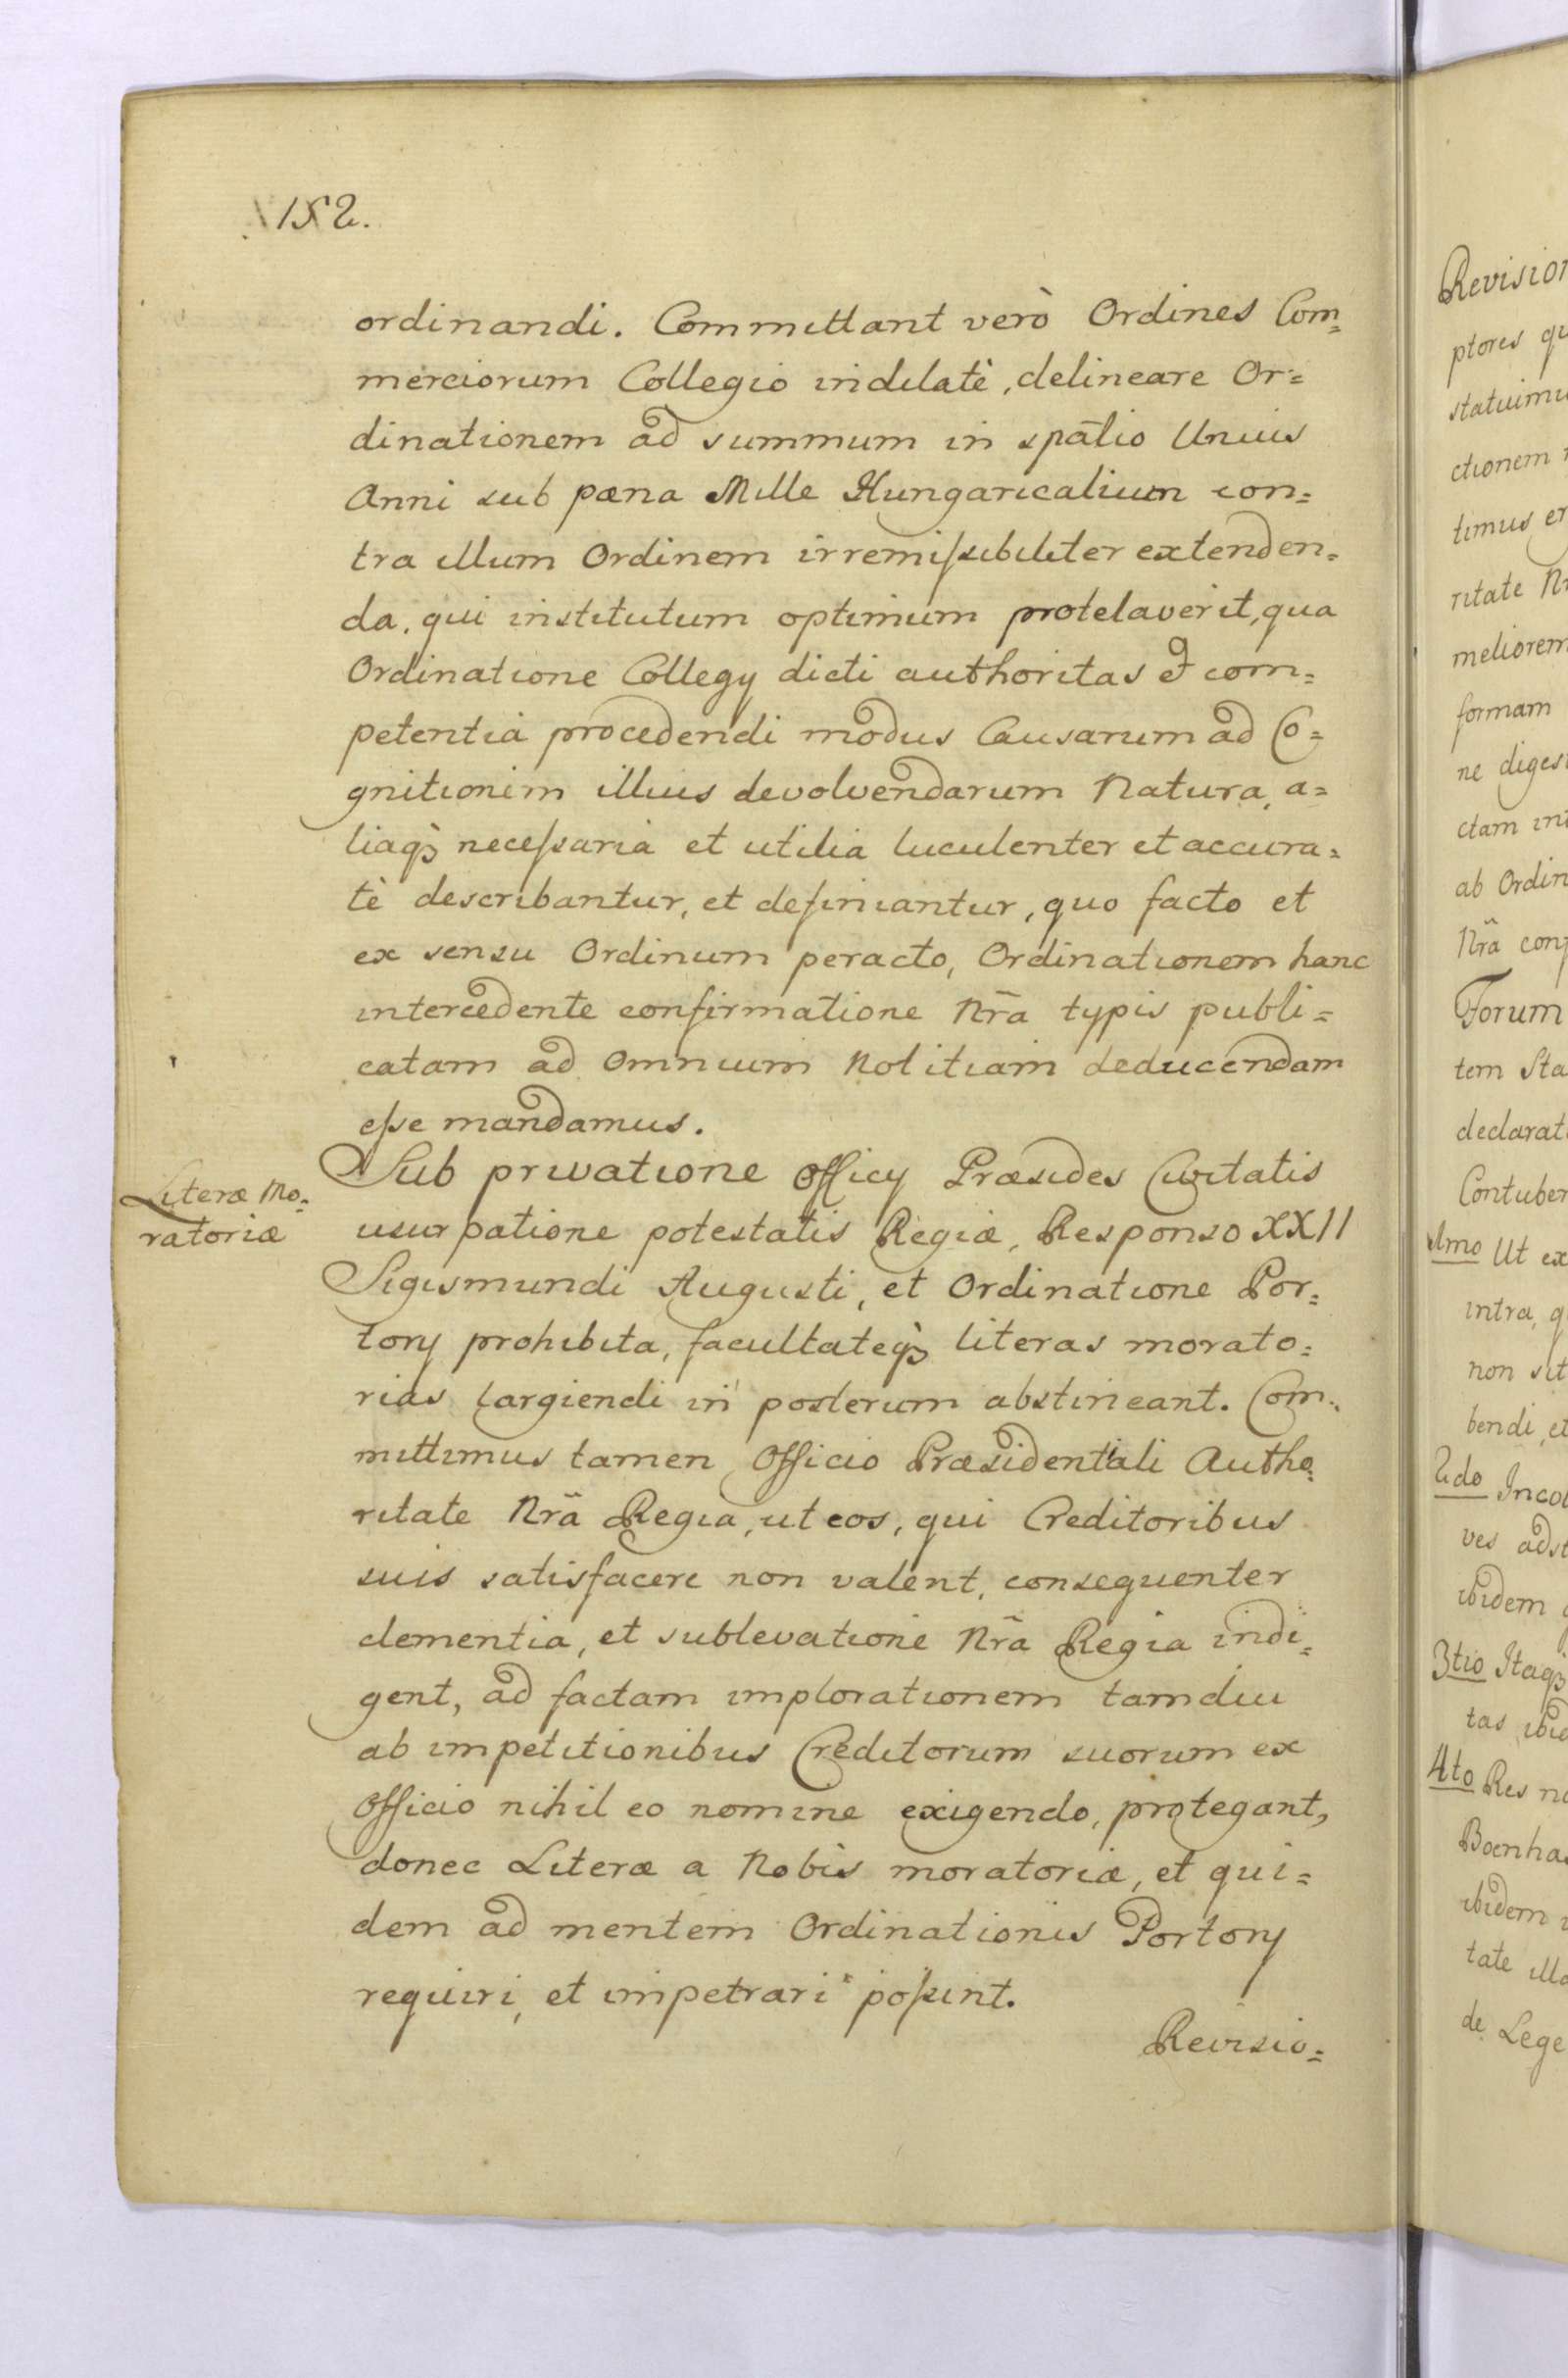 152.
ordinandi. Committant verò Ordines Com=
merciorum Collegio indilatè, delineare Or=
dinationem ad summum in spatio Unius
Anni sub pæna Mille Hungaricalium con=
tra illum Ordinem irremissibiliter extenden=
da, qui institutum optimum protelaverit, qua
Ordinatione Collegy dicti authoritas & com=
petentia procedendi modus Causarum ad Co=
gnitionem illius devolvendarum Natura, a=
liaqꝫ necessaria et utilia luculenter et accura=
tè describantur, et definiantur, quo facto et
ex sensu Ordinum peracto, Ordinationem hanc
intercedente confirmatione Nr̃a typis publi=
catam ad omnium Notitiam deducendam
esse mandamus.
Literæ Mo=
ratoriæ
Sub privatione Officy Præsides Civitatis
usurpatione potestatis Regiæ, Responso XXII
Sigismundi Augusti, et Ordinatione Por=
tory prohibita, facultateqꝫ literas morato=
rias largiendi in posterum abstineant. Com=
mittimus tamen Officio Præsidentiali Autho=
ritate Nr̃a Regia, ut eos, qui Creditoribus
suis satisfacere non valent, consequenter
clementia, et sublevatione Nr̃a Regia indi=
gent, ad factam implorationem tamdiu
ab impetitionibus Creditorum suorum ex
Officio nihil eo nomine exigendo, protegant,
donec Literæ a Nobis moratoriæ, et qui=
dem ad mentem Ordinationis Portory
requiri, et impetrari possint.
Revisio=
Revision
ptores qu
statuimu
ctionem
timus er
ritate Nr
meliorem
formam
ne digest
ctam int
ab Ordin
Nr̃a conf
Forum
tem Sta
declarat
Contuber
1mo Ut ex
intra, q
non sit
bendi, et
2do Incol
ves adst
ibidem
3tio Itaqꝫ
tas ibid
4to Res no
Boenha
ibidem
tate illa
de Lege